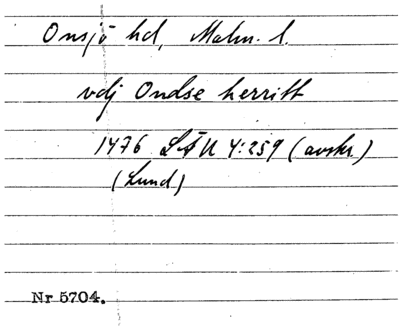 Onsjö hd, Malm. l.
vdj Ondse herritt
1476 LÄU 4:259 (avskr.)
(Lund)
Nr 5704.